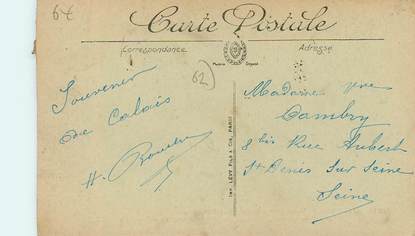 64
Carte Postale
Correspondance
Adresse
Marque Déposé
62)
Souvenir
de Calais
H.
Madame vve
Dambry
8 bis Rue Aubert
St Denis Sur Seine
Seine
Imp. LÉVY Fils & Cie, PARIS